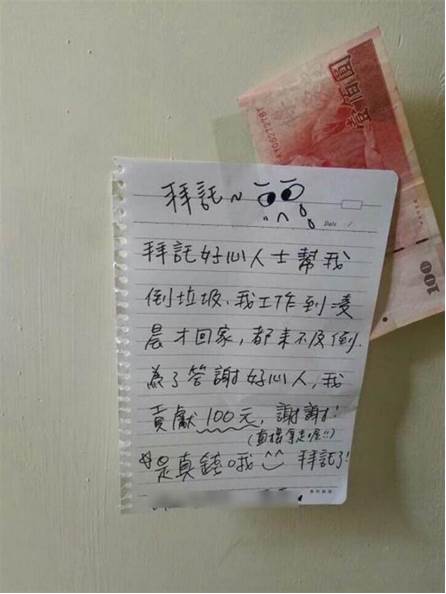 拜託~
Date
拜託好心人士幫我
倒垃圾,我工作到凌
晨才回家,都來不及倒.
為了答謝好心人,我
貢獻100元,謝謝!
(直接拿走喔!!)
☆是真錢哦^^ 拜託了!
壹佰圓
100